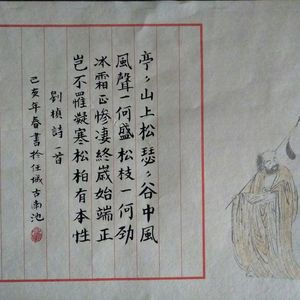 亭〻山上松瑟〻谷中風
風聲一何盛松枝一何勁
冰霜正惨凄終歲始端正
岂不罹凝寒松柏有本性
劉楨詩一首
己亥年春書於任城古南池